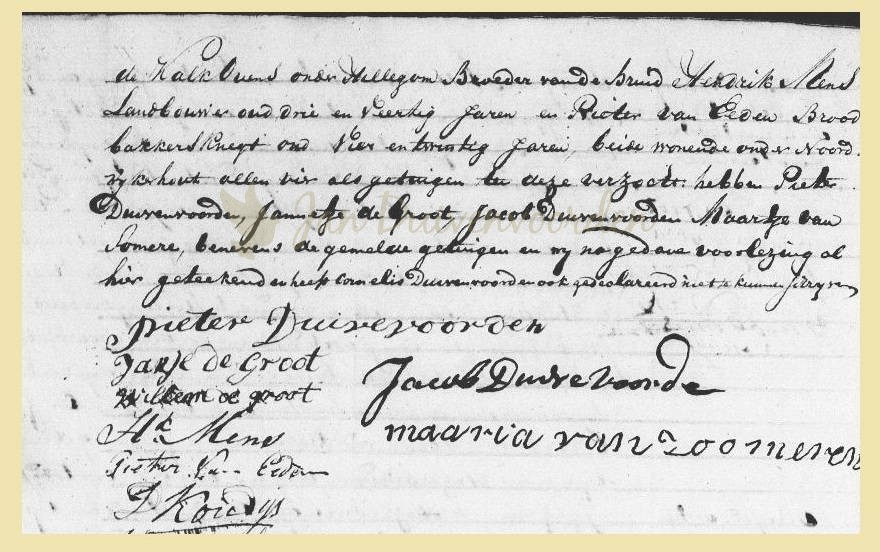 de Kalk Ovens onder Hillegom Broeder vande Bruid Hendrik Mens
Landbouwer oud drie en Veertig Jaren en Pieter van Eeden Brood
bakkersknegt oud Vier en twintig Jaren, beide wonende onder Noord
wijkerhout allen vier als getuigen ten deze verzocht: hebben Pieter
Duivenvoorden, Jannetje de Groot, Jacob Duivenvoorden Maartje van
Someren, benevens de gemelde getuigen en wij na gedane voorlezing al
hier geteekend en heeft Cornelis Duivenvoorden ook gedeclareerd niet te kunnen schryven
pieter Duivevoorden
Jantje de Groot
Jacob Duivevoorde
Willem de groot
Hk. Mens
maaria van zoomeren
Pieter Van Eeden